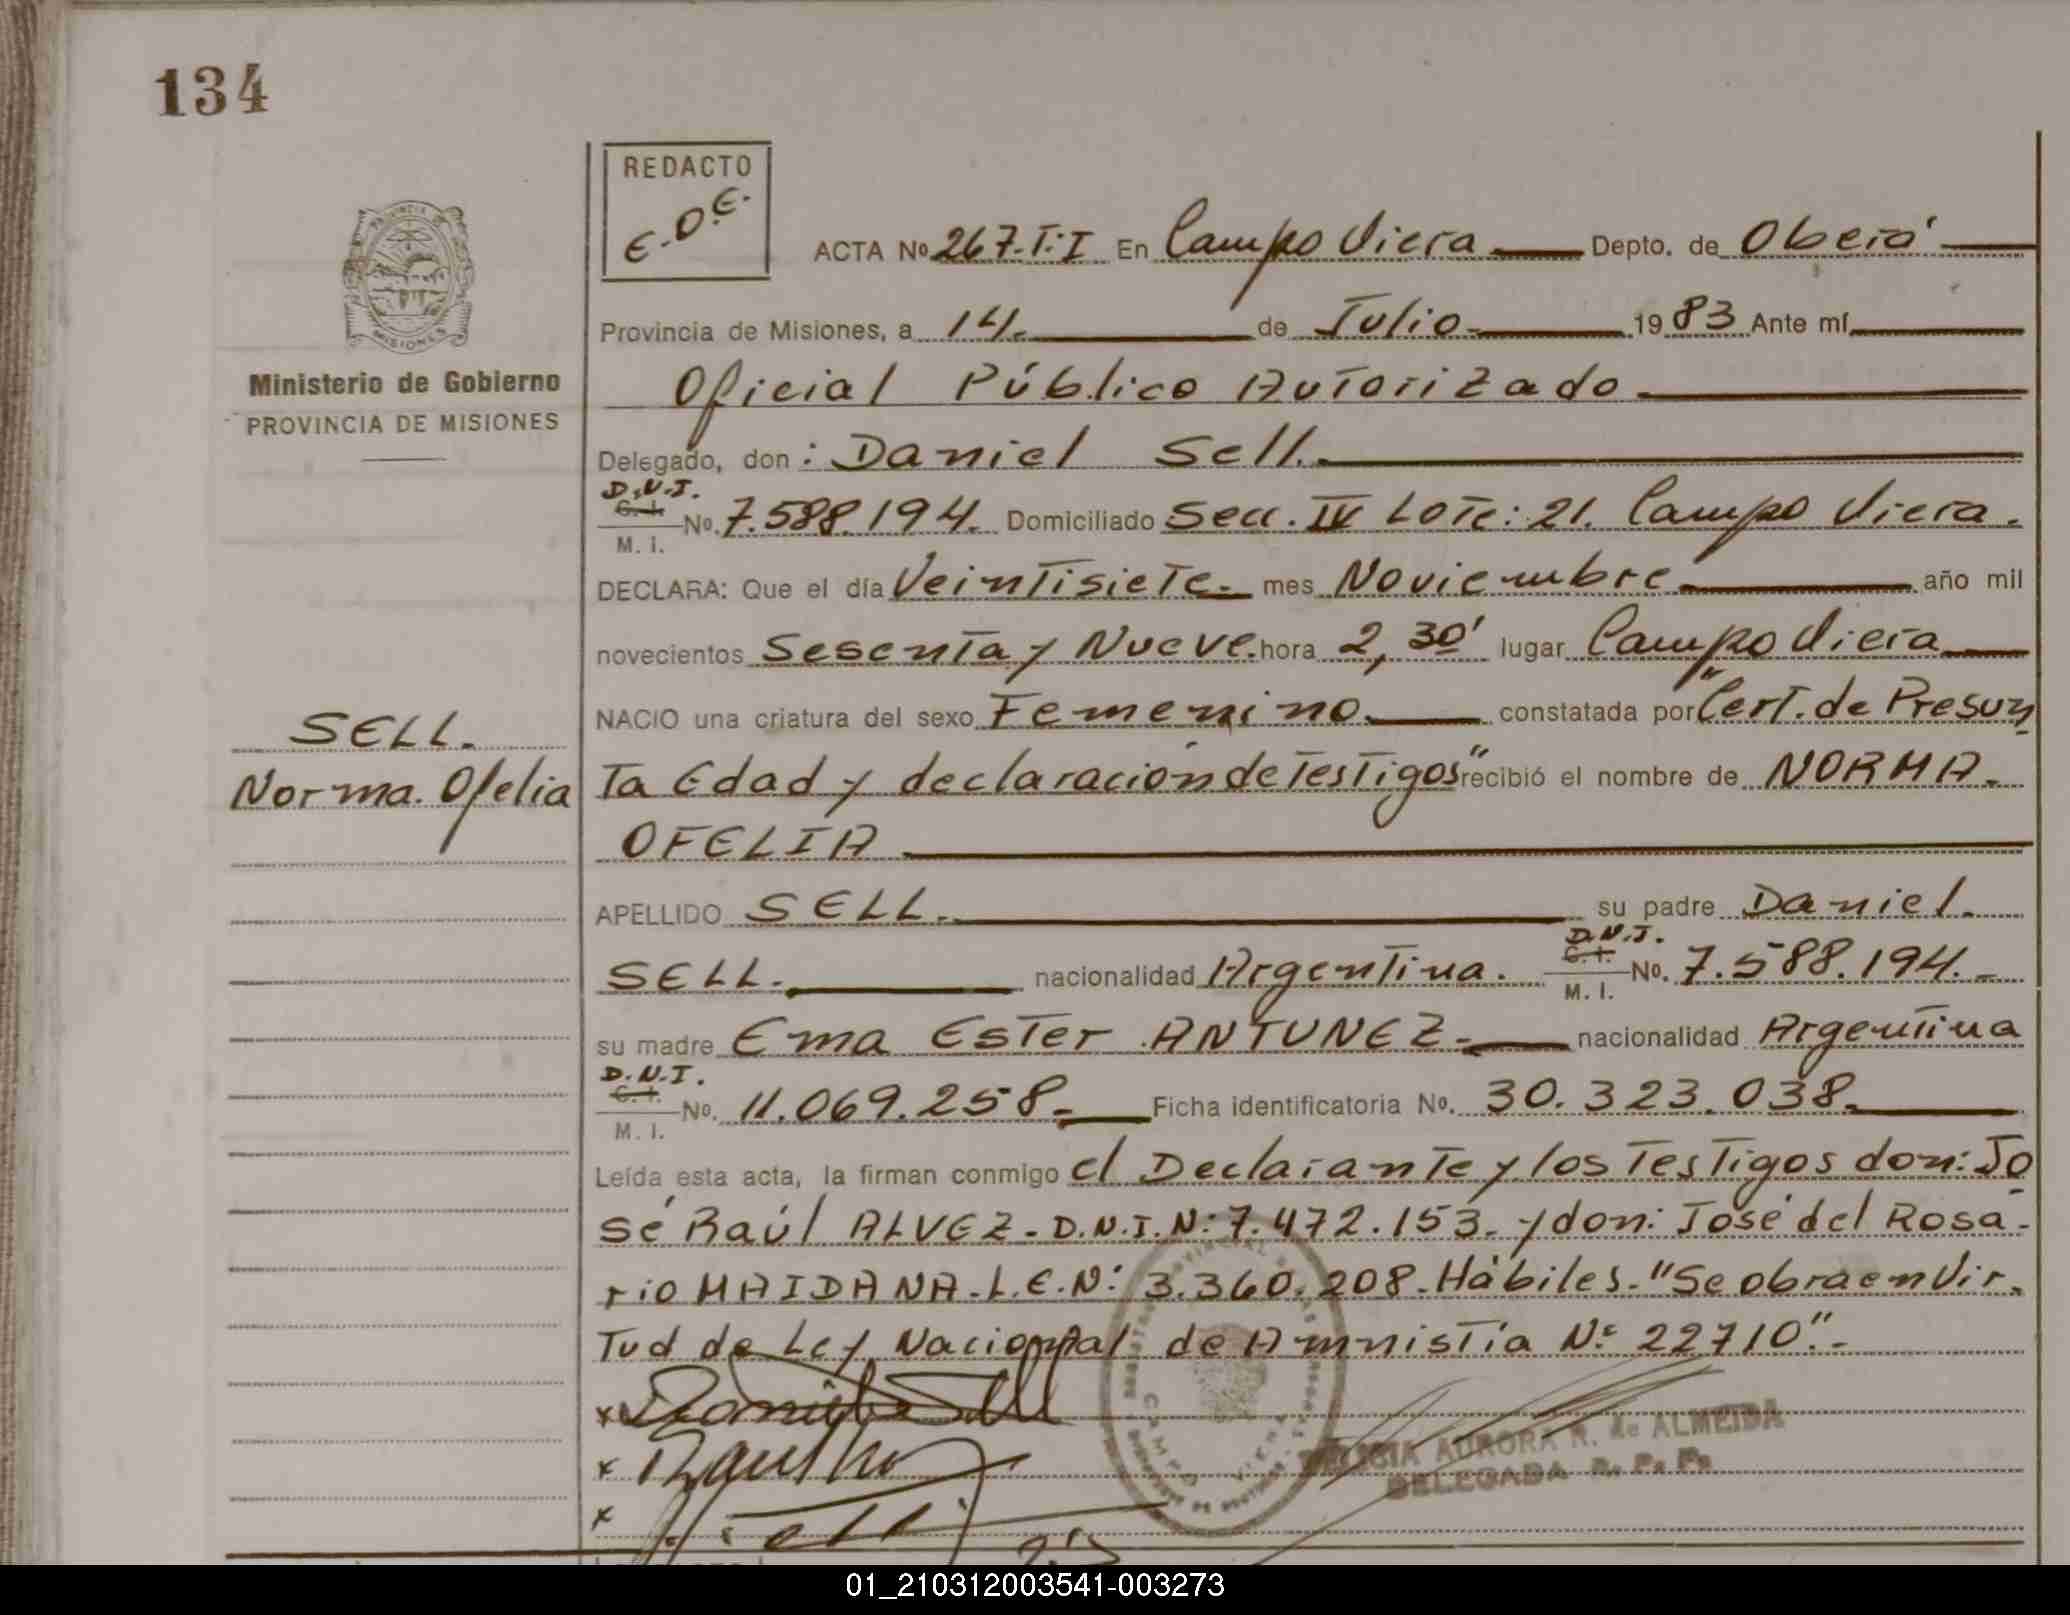 134
REDACTO
E.O.E.
ACTA Nº 267.T:I En Campo Viera Depto. de Oberá
Provincia de Misiones, a 14. de Julio 1983 Ante mí
Ministerio de Gobierno
PROVINCIA DE MISIONES
Oficial Público Autorizado
Delegado, don: Daniel Sell.
D.N.I.
C. I.
M. I.
No. 7.588.194. Domiciliado Secc. IV Lote: 21. Campo Viera.
DECLARA: Que el día Veintisiete mes Noviembre año mil
novecientos Sesenta y Nueve. hora 2,30' lugar Campo Viera
SELL.
Norma. Ofelia
NACIO una criatura del sexo Femenino constatada por "Cert. de Presun
ta Edad y declaración de Testigos" recibió el nombre de NORMA.
OFELIA
APELLIDO SELL. su padre Daniel.
SELL. nacionalidad Argentina. D.N.I. C. I. M. I. No. 7.588.194.-
su madre Ema Ester ANTUNEZ nacionalidad Argentina
D.N.I.
C. I.
M. I.
No. 11.069.258. Ficha identificatoria No. 30.323.038.
Leída esta acta, la firman conmigo el Declarante y los Testigos don: Jo
sé Raúl ALVEZ - D.N.I.N: 7.472.153. y don: José del Rosa-
rio MAIDANA. L.E.N: 3.360.208. Hábiles. "Se obra en Vir-
tud de Ley Nacional de Amnistía Nº 22710".-
AURORA R. de ALMEIDA
DELEGADA R. P. P.
CAMPO VIERA
01_210312003541-003273